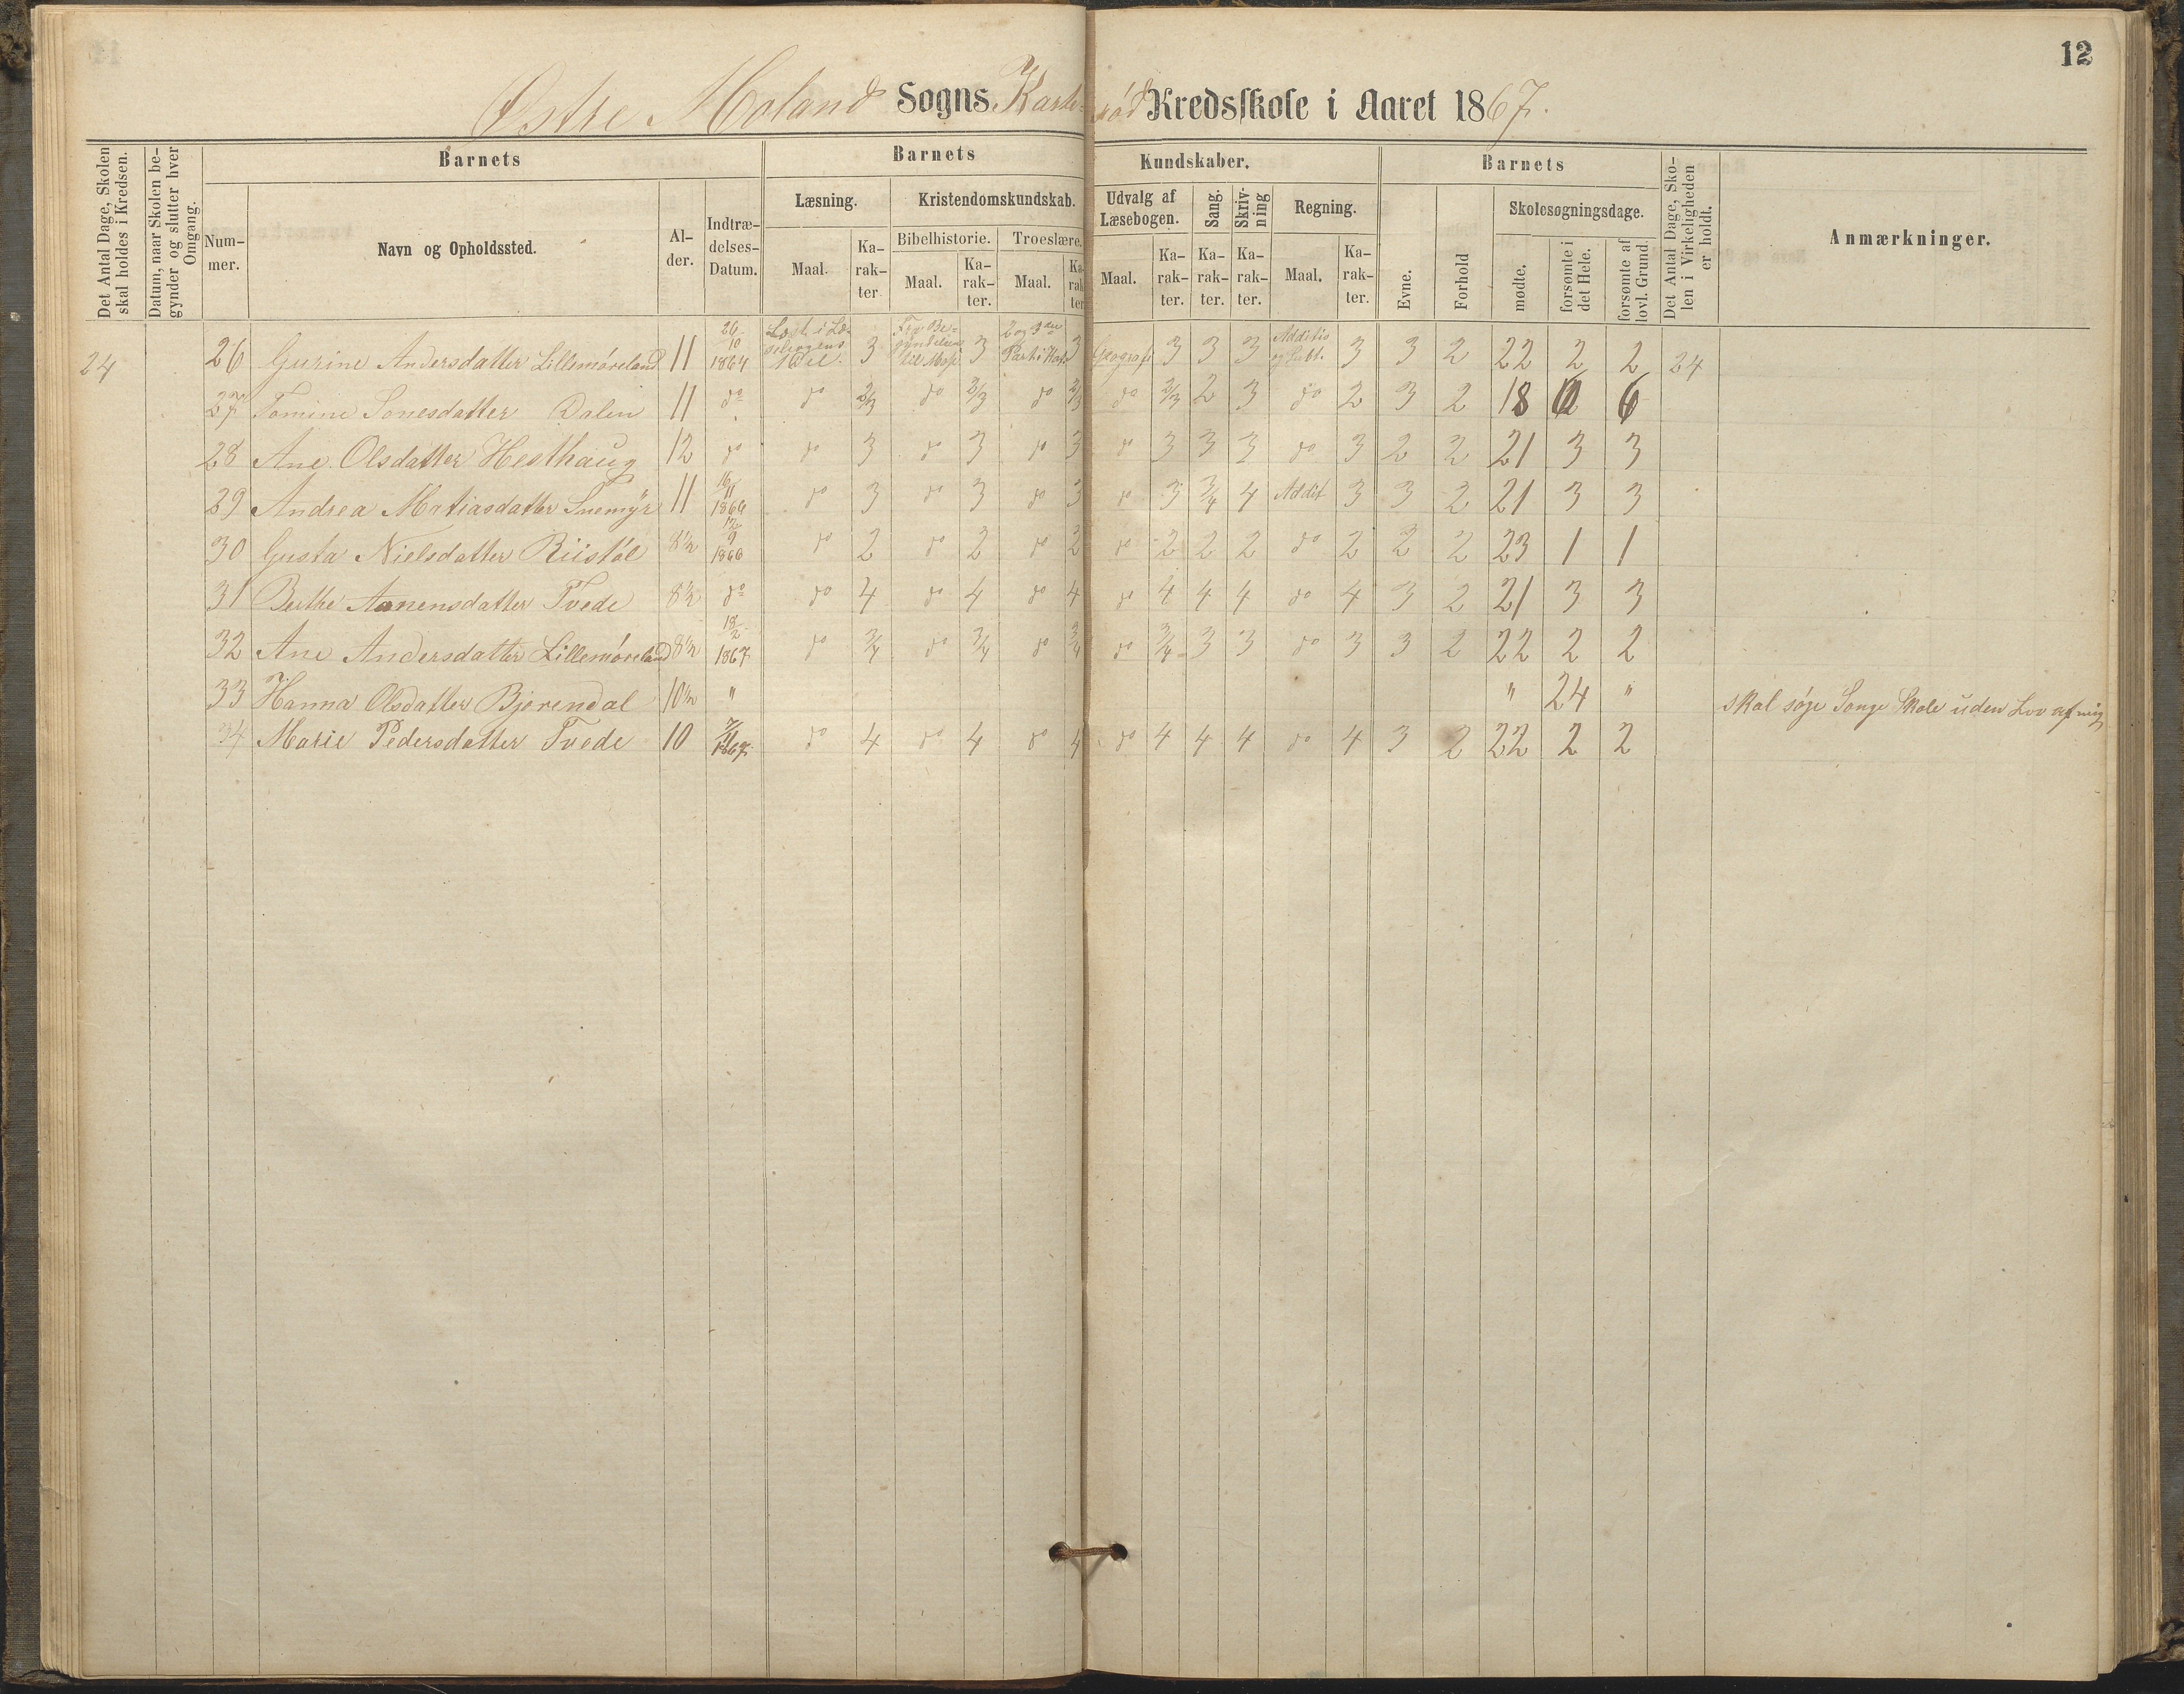 12
Østre Moland Sogns Kredsskole i Aaret 1867.
Det Antal Dage, Skolen skal holdes i Kredsen.
Datum, naar Skolen begynder og slutter hver Omgang.
Barnets
Nummer.
Navn og Opholdssted.
Alder.
Indtrædelses-Datum.
Barnets Kundskaber.
Læsning.
Maal.
Karakter
Kristendomskundskab.
Bibelhistorie.
Maal.
Karakter.
Troeslære.
Maal.
Karakter
Udvalg af Læsebogen.
Maal.
Karakter.
Sang.
Karakter.
Skrivning
Karakter.
Regning.
Maal.
Karakter.
Barnets
Evne.
Forhold
Skolesøgningsdage.
mødte.
forsømte i det Hele.
forsømte af lovl. Grund.
Det Antal Dage, Skolen i Virkeligheden er holdt.
Anmærkninger.
24 26 Gurine Andersdatter Lillemøreland 11 26/10 1864 3 3 2 og 3 Part 3 Geografi 3 3 3 Additio og Subt. 3 3 2 22 2 2 24
27 Tomine Sonesdatter Dalen 11 do do 2/3 do 2/3 do 2/3 do 2/3 2 3 do 2 3 2 18 6 6
28 Ane Olsdatter Hesthaug 12 do do 3 do 3 do 3 do 3 3 3 do 3 2 2 21 3 3
29 Andrea Matiasdatter 11 16/11 do 3 do 3 do 3 do 3 3/4 4 Addit 3 3 2 21 3 3
30 Gusta Nielsdatter Riistøl 8½ 1866 do 2 do 2 do 2 do 2 2 2 do 2 2 2 23 1 1
31 Berthe Aanensdatter Tvede 8½ do do 4 do 4 do 4 do 4 4 4 do 4 3 2 21 3 3
32 Ane Andersdatter Lillemøreland 8½ 18/2 1867 do 3/4 do 3/4 do 3/4 do 3/4 3 3 do 3 3 2 22 2 2
33 Hanna Olsdatter Bjørendal 10½ " " 24 " skal søge Songe Skole uden Lov af mig
34 Marie Pedersdatter Tvede 10 7/11 1867 do 4 do 4 do 4 do 4 4 4 do 4 3 2 22 2 2